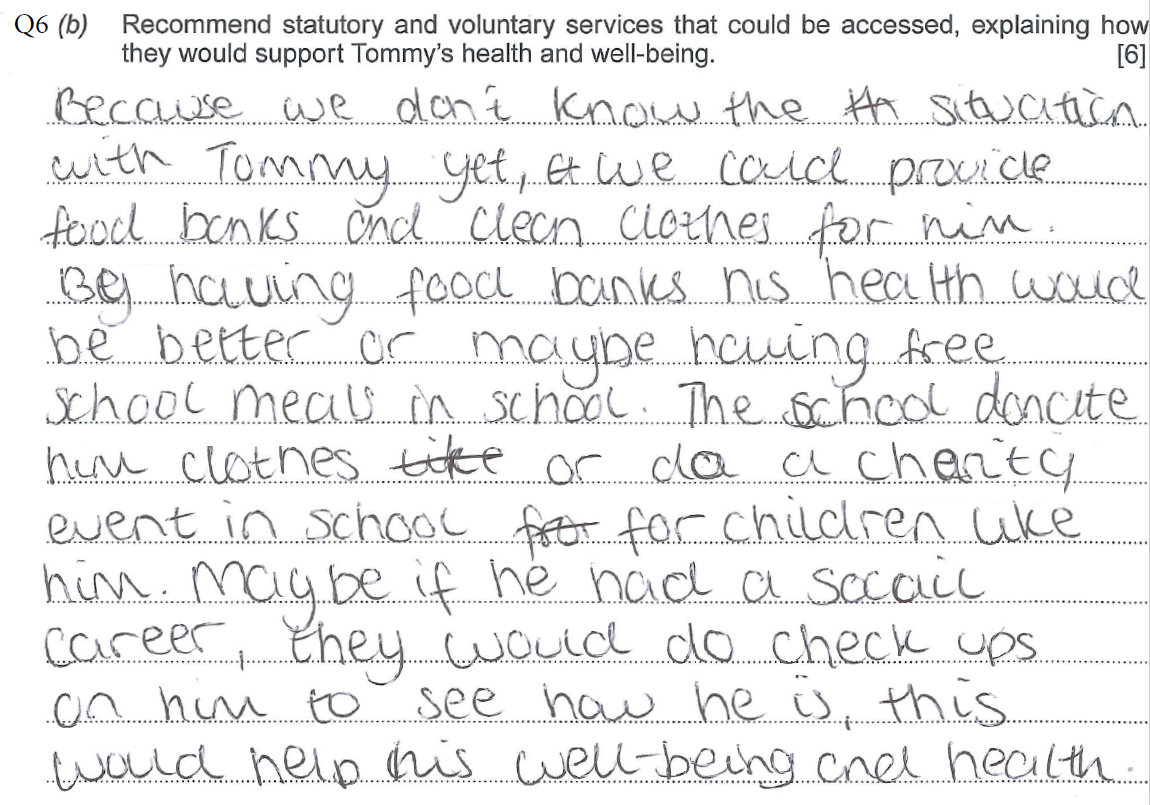 Q6 (b) Recommend statutory and voluntary services that could be accessed, explaining how
they would support Tommy's health and well-being. [6]
Because we don't know the th situation
with Tommy yet, & we could provide
food banks and clean clothes for him.
By having food banks his health would
be better or maybe having free
school meals in school. The school donate
him clothes like or do a charity
event in school for for children like
him. Maybe if he had a socail
career, they would do check ups
on him to see how he is, this
would help his well-being and health.